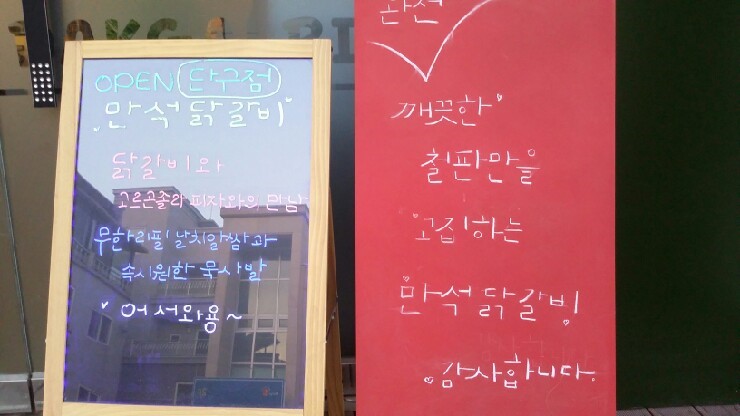 OPEN 단구점
만석닭갈비
닭갈비와
고르곤졸라 피자와의 만남
무한리필 날치알쌈과
속시원한 묵사발
어서와용~
관선
깨끗한
칠판만을
고집하는
만석닭갈빙
감사합니다.